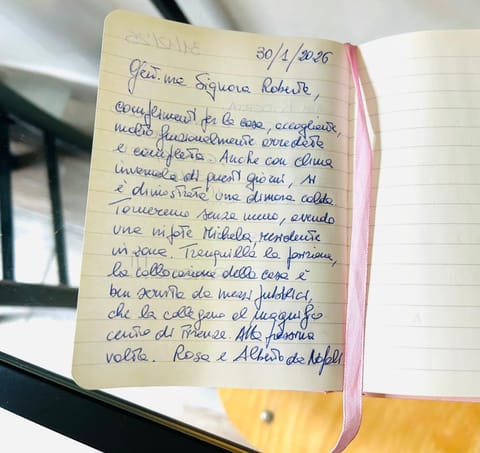 30/1/2026
Gent.ma Signora Roberta,
complimenti per la casa, accogliente,
molto funzionalmente arredata
e completa. Anche con clima
invernale di questi giorni, si
è dimostrata una dimora calda.
Torneremo senza meno, avendo
una nipote Michela, residente
in zona. Tranquilla la posizione,
la collocazione della casa è
ben servita da mezzi pubblici,
che la collegano al magnifico
centro di Firenze. Alla prossima
volta. Rosa e Alberto da Napoli